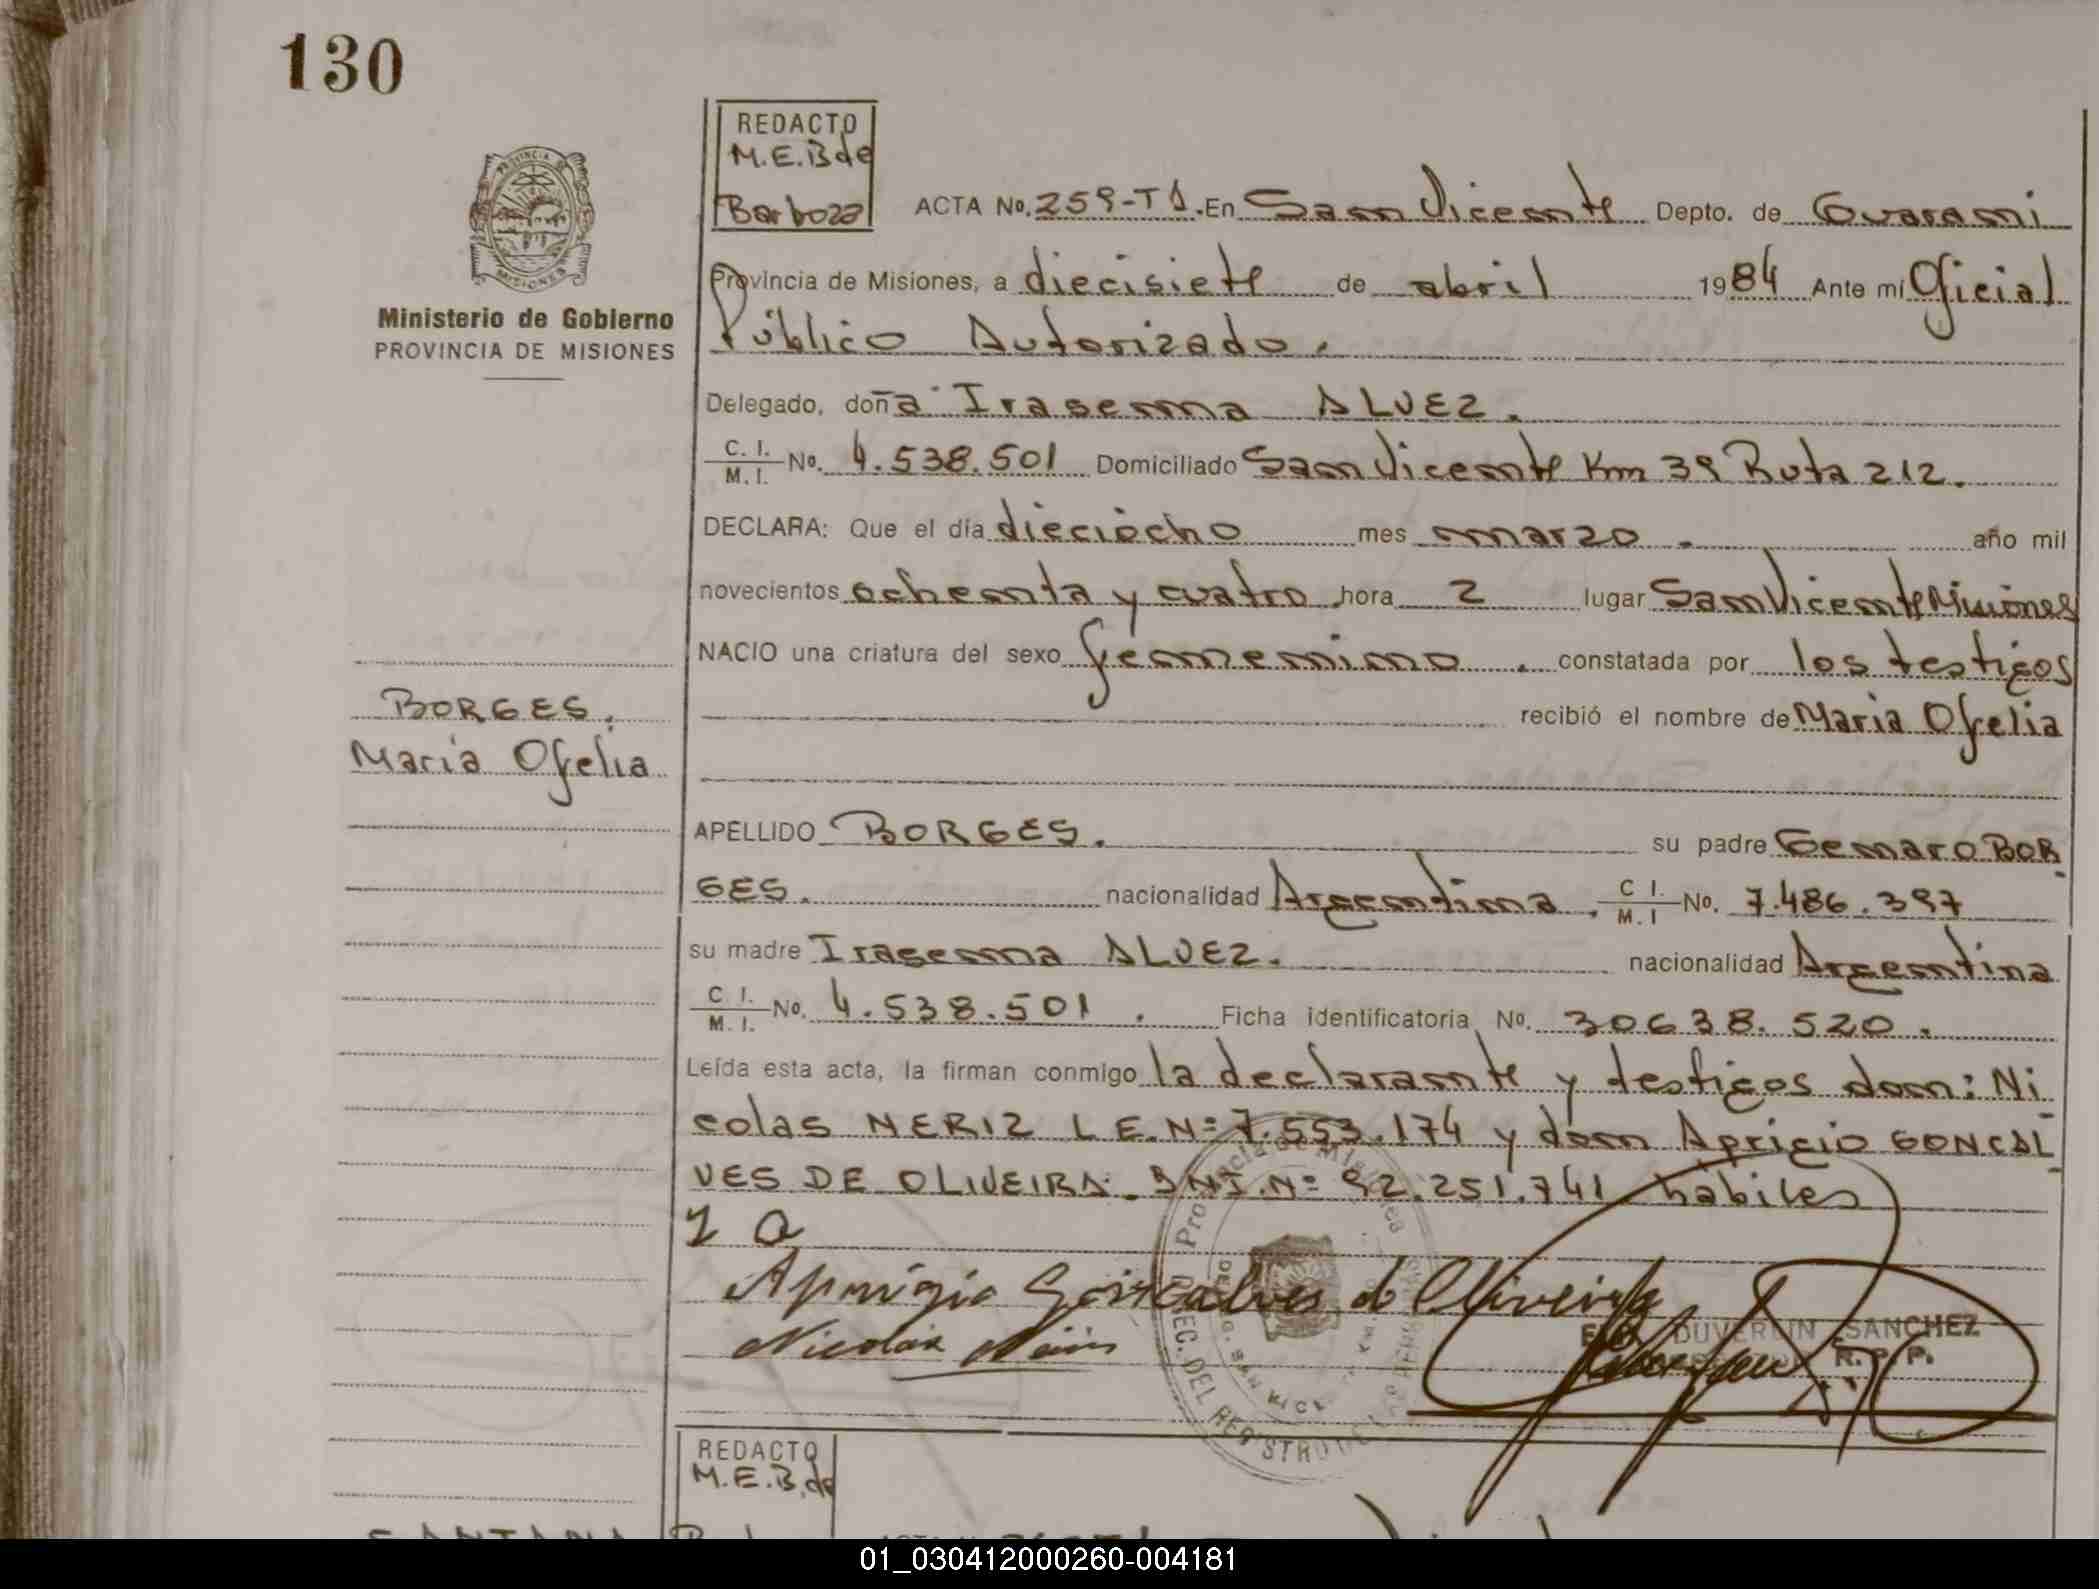 130
REDACTO
M.E.B de
Barboza
ACTA No. 259-T1. En San Vicente Depto. de Guarani
Provincia de Misiones, a diecisiete de abril 1984 Ante mí Oficial
Público Autorizado.
Ministerio de Gobierno
PROVINCIA DE MISIONES
Delegado, doña Irasema ALVEZ.
C. I.
M. I. No. 4.538.501 Domiciliado San Vicente Km 39 Ruta 212.
DECLARA: Que el día dieciocho mes marzo. año mil
novecientos ochenta y cuatro hora 2 lugar San Vicente Misiones
NACIO una criatura del sexo femenino. constatada por los testigos
recibió el nombre de Maria Ofelia
BORGES.
María Ofelia
APELLIDO BORGES. su padre Genaro BOR
GES. nacionalidad Argentina. C I.
M. I No. 7.486.397
su madre Irasema ALVEZ. nacionalidad Argentina
C I.
M. I. No. 4.538.501. Ficha identificatoria No. 30638.520.
Leída esta acta, la firman conmigo la declarante y testigos don: Ni
colas NERIZ L E. Nº 7.553.174 y don Aprigio GONCAL
VES DE OLIVEIRA. DNI. Nº 92.251.741 habiles
Aprigio Goncalves de Oliveira
Nicolás
DUVERLIN SANCHEZ
R. P. P.
Provincia de Misiones
DEL REGISTRO
REDACTO
M.E.B. de
01_030412000260-004181